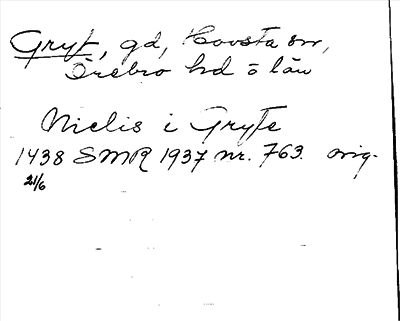 Gryt, gd, Hovsta sn,
Örebro hd o län
Nielis i Gryte
1438 SMR 1937 nr. 763. orig.
21/6